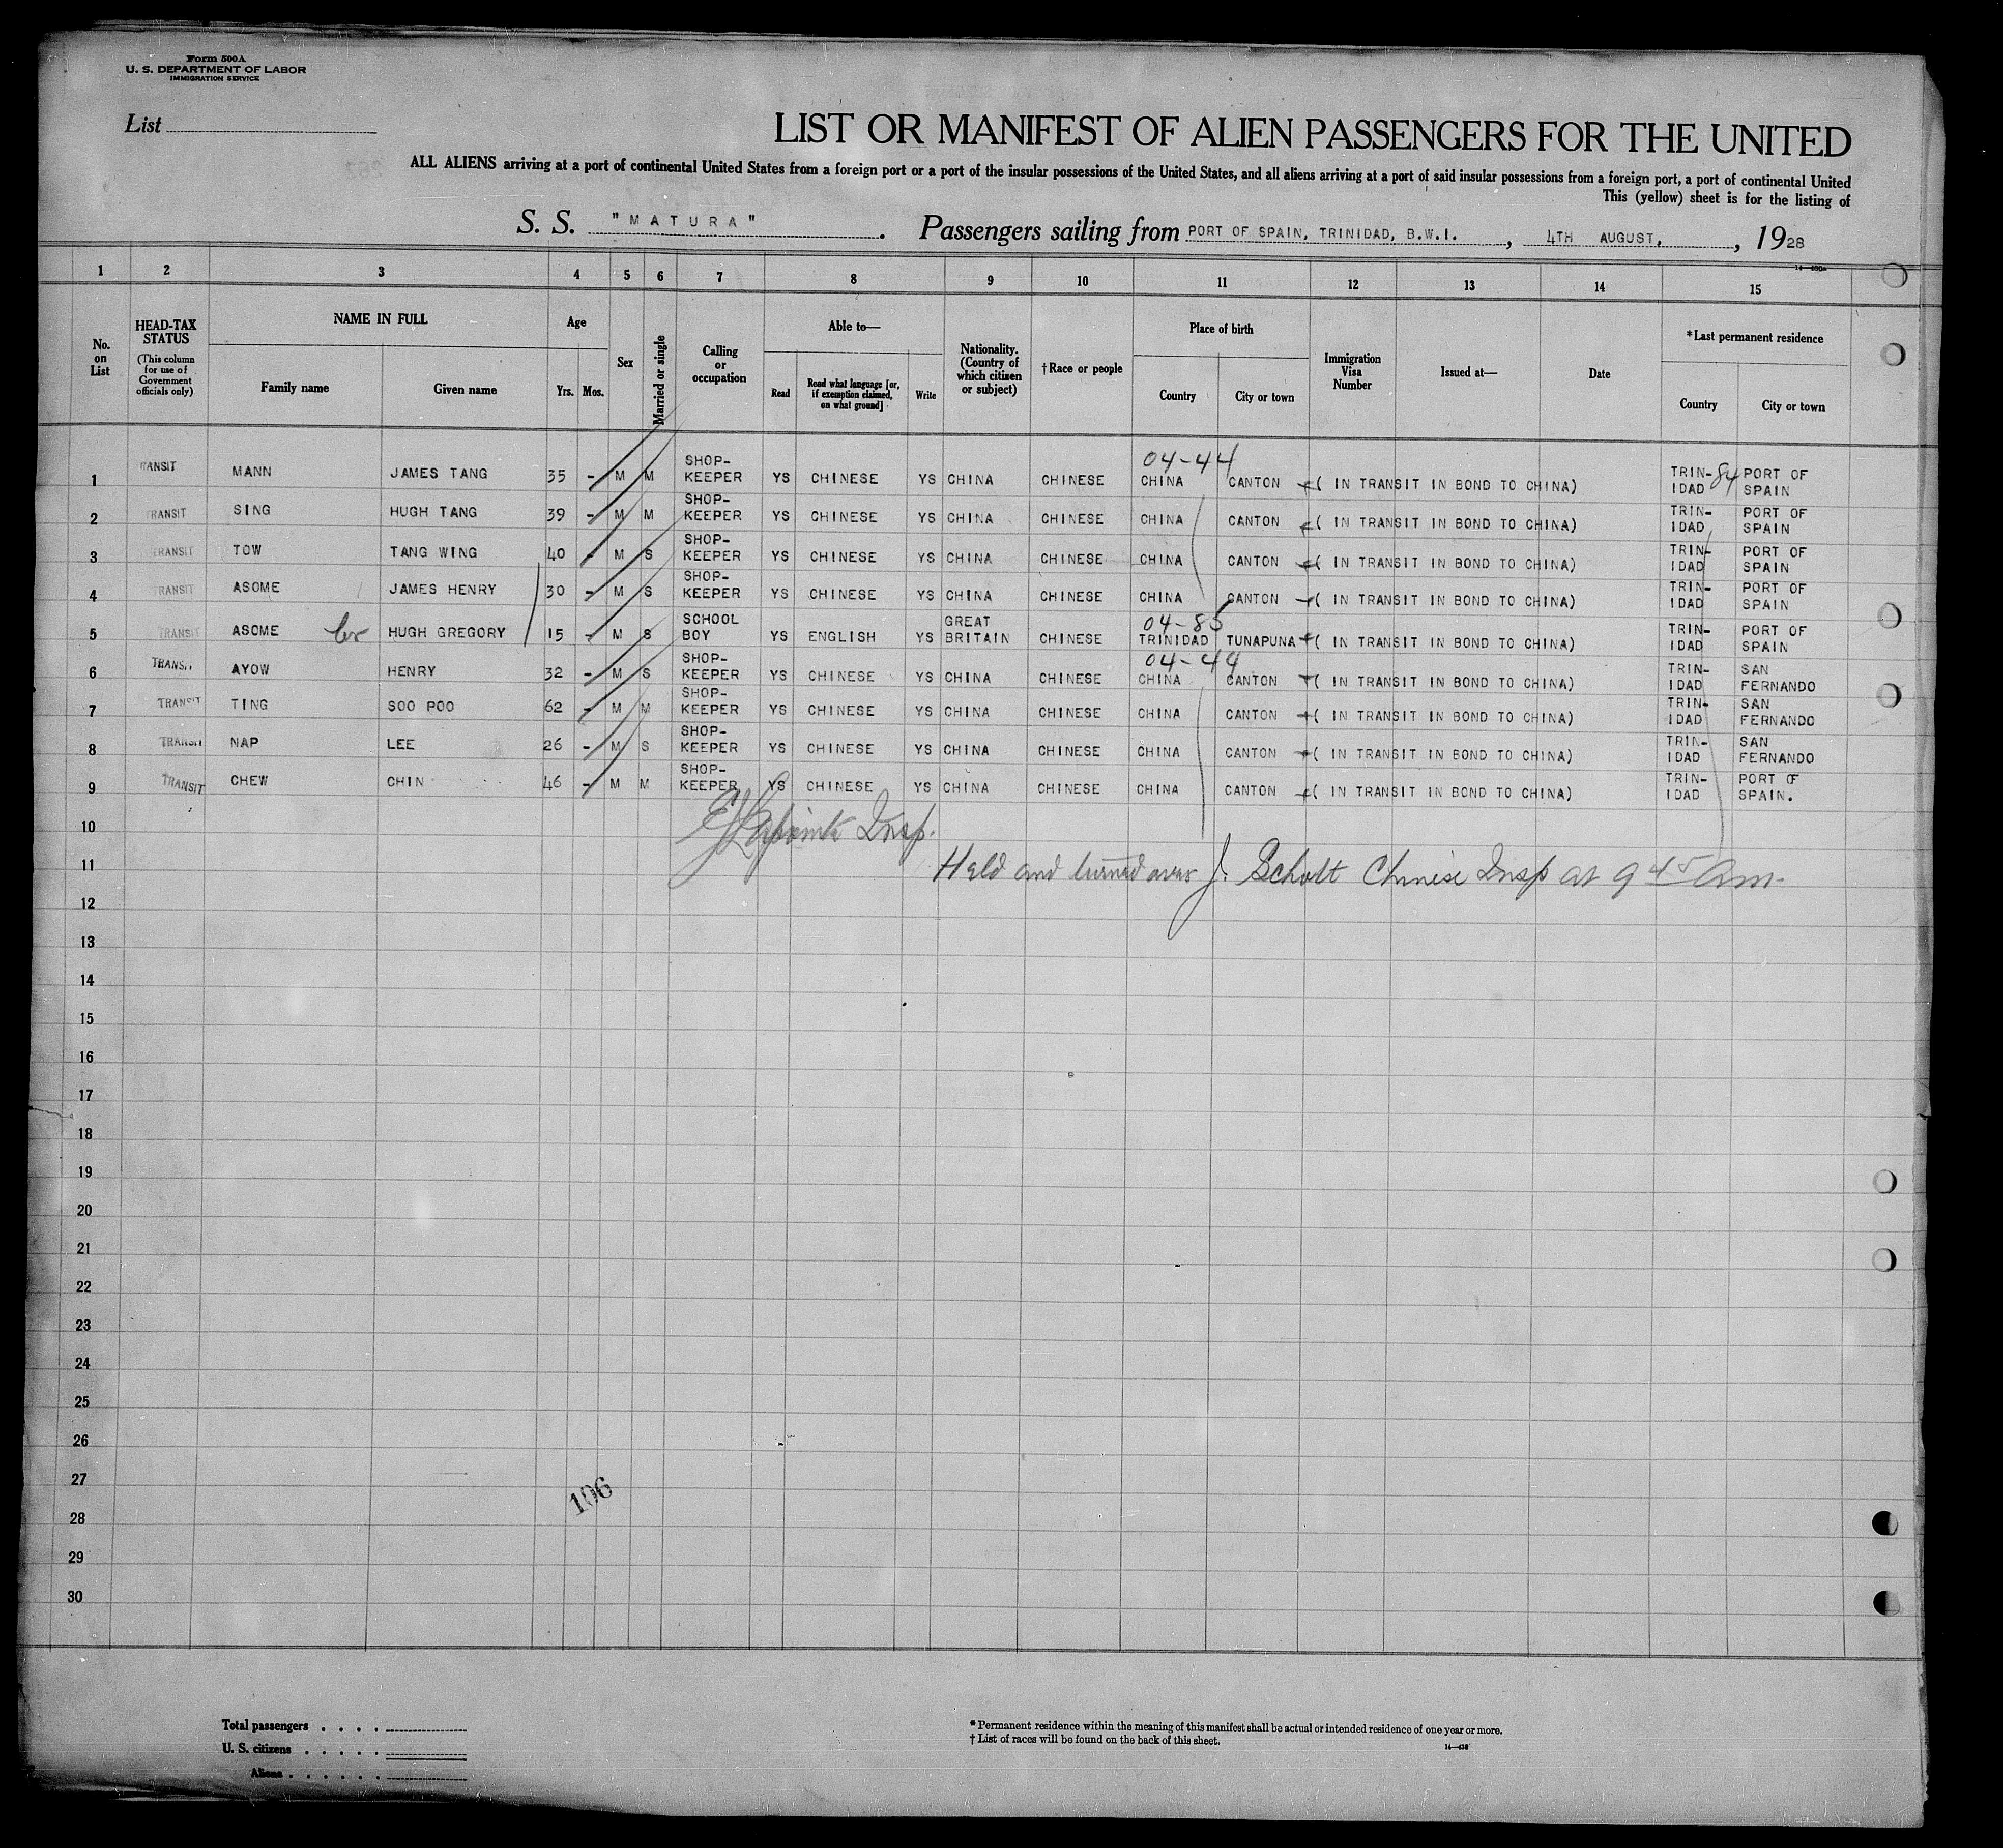 Form 500A
U. S. DEPARTMENT OF LABOR
IMMIGRATION SERVICE
List
LIST OR MANIFEST OF ALIEN PASSENGERS FOR THE UNITED
ALL ALIENS arriving at a port of continental United States from a foreign port or a port of the insular possessions of the United States, and all aliens arriving at a port of said insular possessions from a foreign port, a port of continental United
This (yellow) sheet is for the listing of
S. S. "MATURA". Passengers sailing from PORT OF SPAIN, TRINIDAD, B.W.I., 4TH AUGUST, , 1928
1 2 3 4 5 6 7 8 9 10 11 12 13 14 15
No. on List
HEAD-TAX STATUS
(This column for use of Government officials only)
NAME IN FULL
Family name Given name
Age
Yrs. Mos.
Sex
Married or single
Calling or occupation
Able to—
Read Read what language [or, if exemption claimed, on what ground] Write
Nationality. (Country of which citizen or subject)
†Race or people
Place of birth
Country City or town
Immigration Visa Number
Issued at—
Date
*Last permanent residence
Country City or town
04-44
1 TRANSIT MANN JAMES TANG 35 - M M SHOP-KEEPER YS CHINESE YS CHINA CHINESE CHINA CANTON ( IN TRANSIT IN BOND TO CHINA) TRIN-IDAD 84 PORT OF SPAIN
2 TRANSIT SING HUGH TANG 39 - M M SHOP-KEEPER YS CHINESE YS CHINA CHINESE CHINA CANTON ( IN TRANSIT IN BOND TO CHINA) TRIN-IDAD PORT OF SPAIN
3 TRANSIT TOW TANG WING 40 - M S SHOP-KEEPER YS CHINESE YS CHINA CHINESE CHINA CANTON ( IN TRANSIT IN BOND TO CHINA) TRIN-IDAD PORT OF SPAIN
4 TRANSIT ASOME JAMES HENRY 30 - M S SHOP-KEEPER YS CHINESE YS CHINA CHINESE CHINA CANTON ( IN TRANSIT IN BOND TO CHINA) TRIN-IDAD PORT OF SPAIN
04-85
5 TRANSIT ASOME HUGH GREGORY 15 - M S SCHOOL BOY YS ENGLISH YS GREAT BRITAIN CHINESE TRINIDAD TUNAPUNA ( IN TRANSIT IN BOND TO CHINA) TRIN-IDAD PORT OF SPAIN
04-44
6 TRANSIT AYOW HENRY 32 - M S SHOP-KEEPER YS CHINESE YS CHINA CHINESE CHINA CANTON ( IN TRANSIT IN BOND TO CHINA) TRIN-IDAD SAN FERNANDO
7 TRANSIT TING SOO POO 62 - M M SHOP-KEEPER YS CHINESE YS CHINA CHINESE CHINA CANTON ( IN TRANSIT IN BOND TO CHINA) TRIN-IDAD SAN FERNANDO
8 TRANSIT NAP LEE 26 - M S SHOP-KEEPER YS CHINESE YS CHINA CHINESE CHINA CANTON ( IN TRANSIT IN BOND TO CHINA) TRIN-IDAD SAN FERNANDO
9 TRANSIT CHEW CHIN 46 - M M SHOP-KEEPER YS CHINESE YS CHINA CHINESE CHINA CANTON ( IN TRANSIT IN BOND TO CHINA) TRIN-IDAD PORT OF SPAIN.
10 Insp.
11 Held and turned over J. Schott Chinese Insp at 9 45 am
12
13
14
15
16
17
18
19
20
21
22
23
24
25
26
27
106
28
29
30
Total passengers . . . .
U. S. citizens . . . . .
Aliens . . . . . .
* Permanent residence within the meaning of this manifest shall be actual or intended residence of one year or more.
† List of races will be found on the back of this sheet.